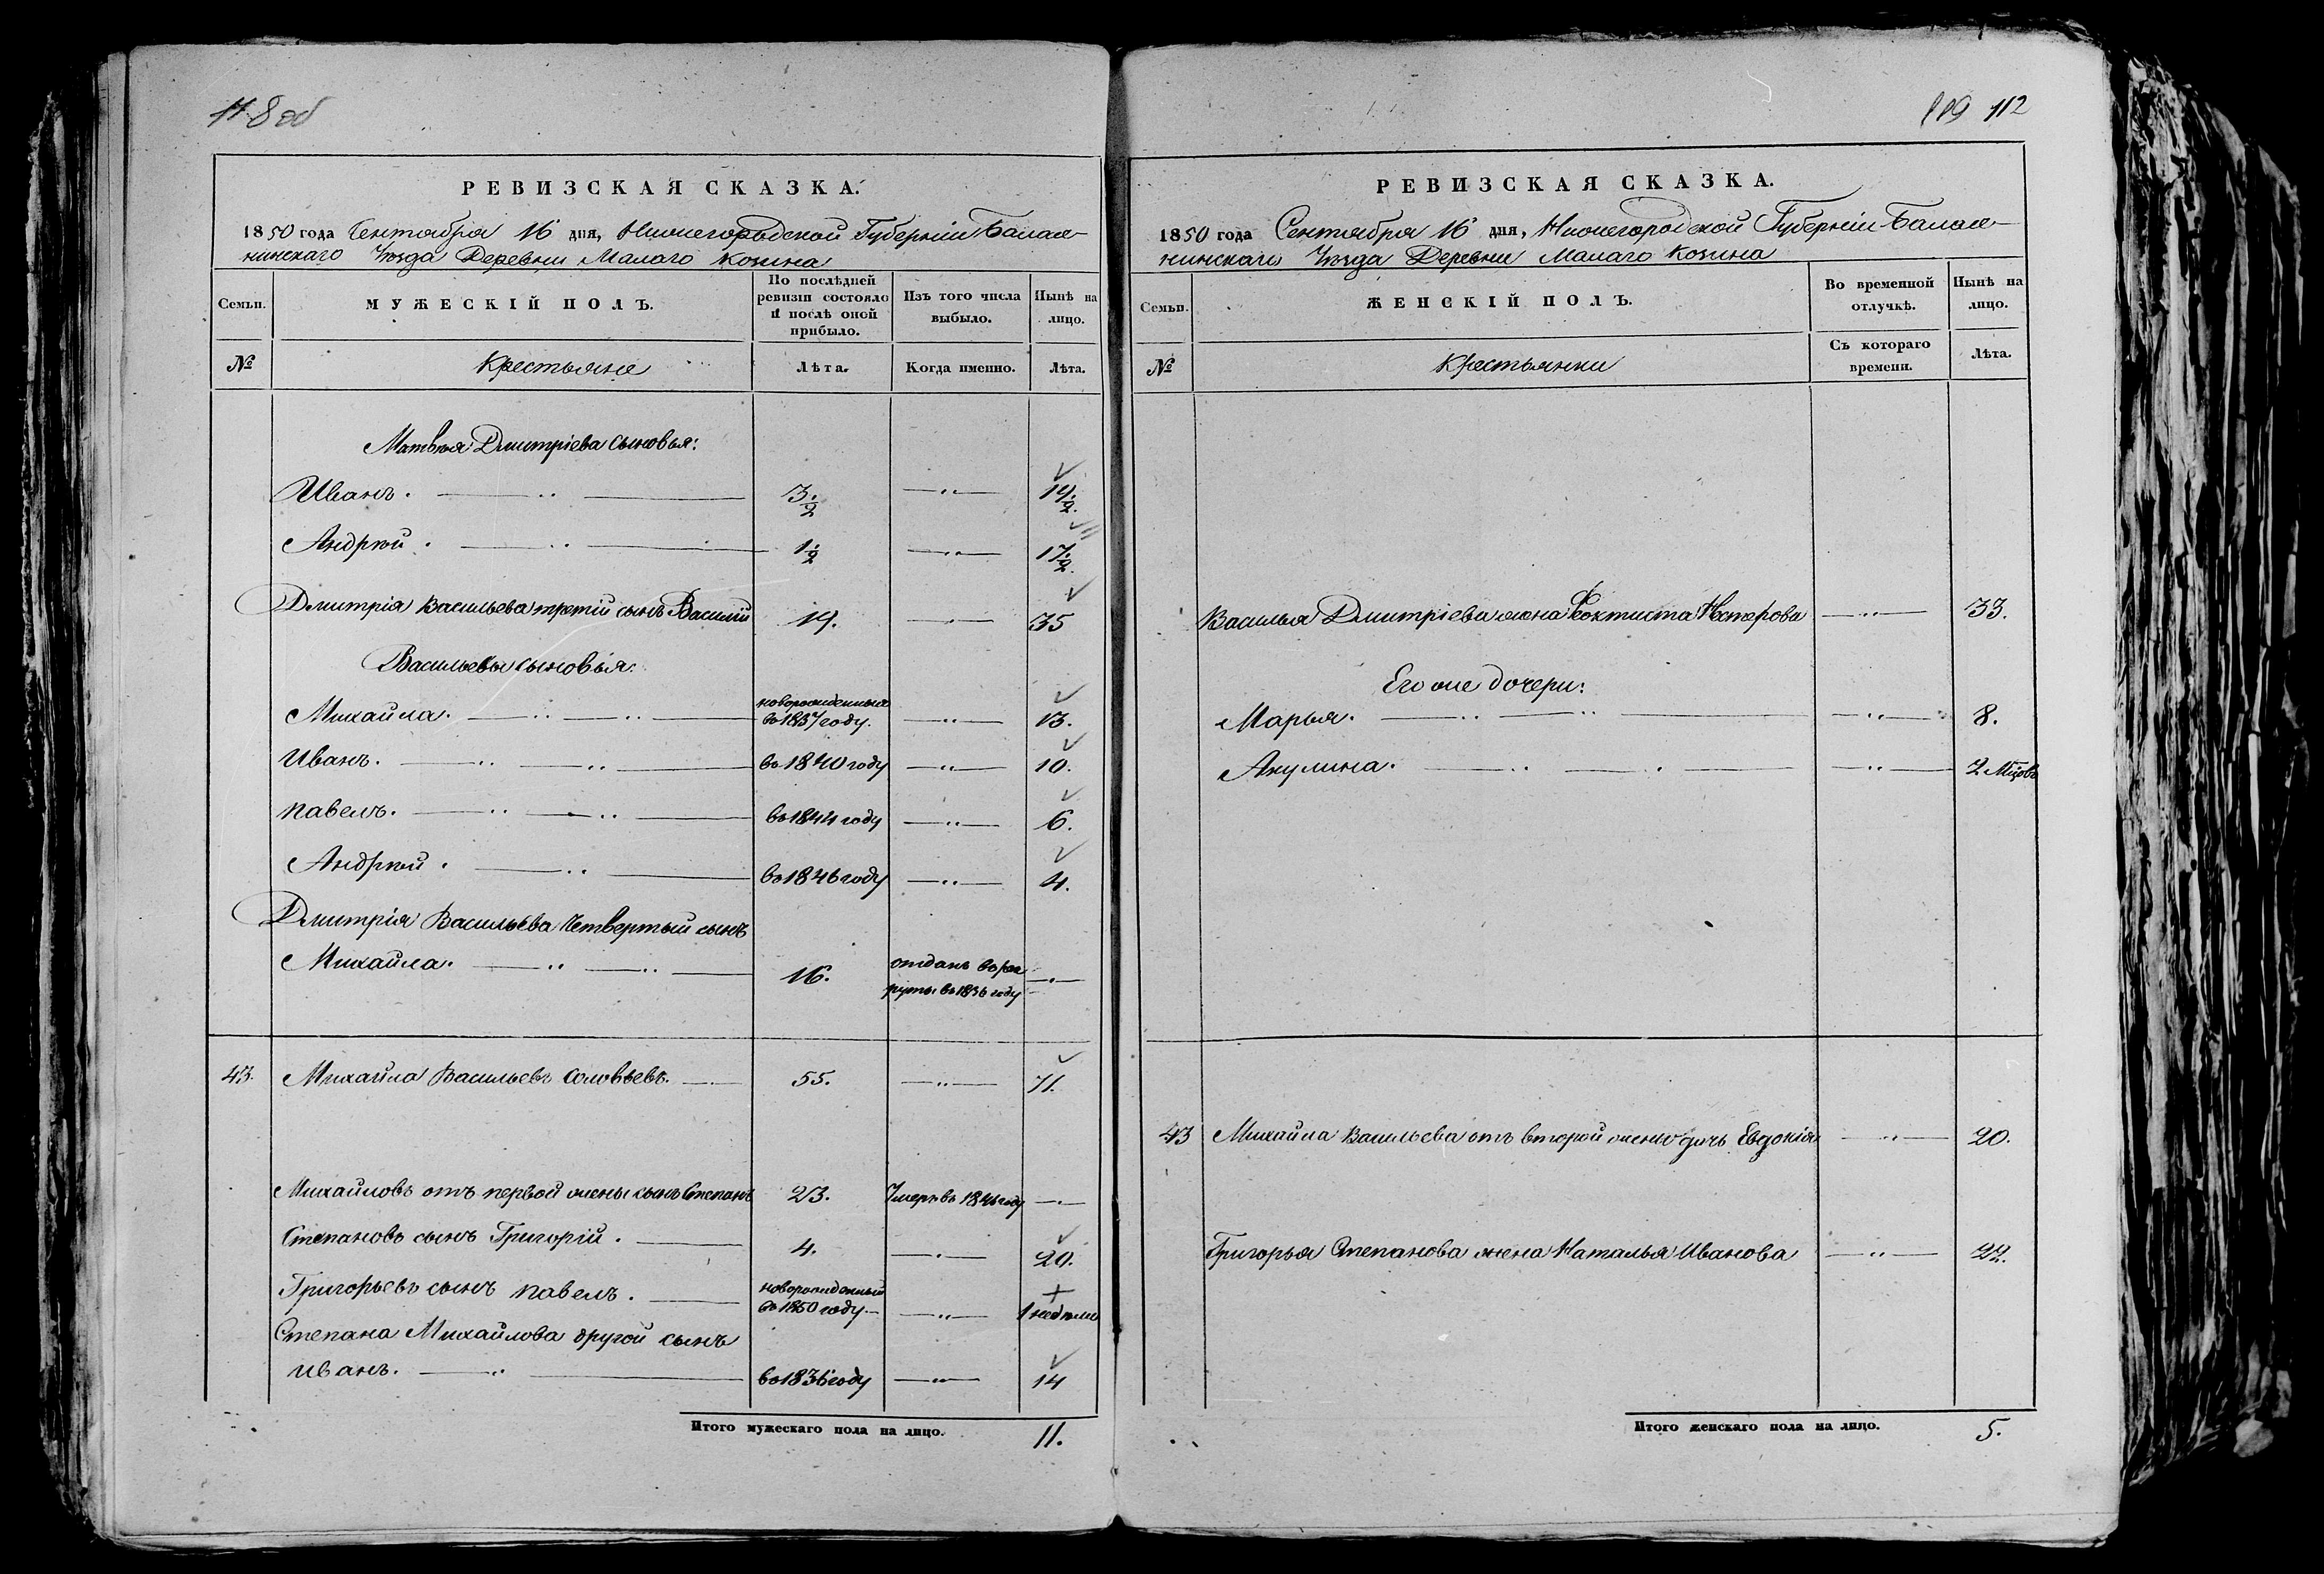 118 об
РЕВИЗСКАЯ СКАЗКА.
1850 года Сентября 16 дня, Нижегородской Губерніи Балах-
нинскаго Уѣзда Деревни Малаго Козина
Семьи.
МУЖЕСКІЙ ПОЛЪ.
По послѣдней
ревизіи состояло
и послѣ оной
прибыло.
Изъ того числа
выбыло.
Нынѣ на
лицо.
№
Крестьяне
Лѣта.
Когда именно.
Лѣта.
Матвѣя Дмитріева сыновья:
Иванъ. 3 1/2 19 1/2.
Андрѣй. 1 1/2 17 1/2.
Дмитрія Васильева третій сынъ Василій 19. 35
Васильевы сыновья:
Михайла. новорожденныя въ 1837 году. 13.
Иванъ. въ 1840 году 10.
Павелъ. въ 1844 году 6.
Андрѣй. въ 1846 году 4.
Дмитрія Васильева четвертый сынъ
Михайла. 16. отданъ въ рек
руты въ 1836 году
43. Михайла Васильевъ Соловьевъ. 55. 71.
Михайловъ отъ первой жены сынъ Степанъ 23. Умеръ въ 1846 году
Степановъ сынъ Григорій. 4. 20.
Григорьевъ сынъ Павелъ. новорожденный въ 1850 году. 1 недѣли
Степана Михайлова другой сынъ
Иванъ. въ 1836 году 14
Итого мужескаго пола на лицо. 11.
119 112
РЕВИЗСКАЯ СКАЗКА.
1850 года Сентября 16 дня, Нижегородской Губерніи Балах-
нинскаго Уѣзда Деревни Малаго Козина
Семьи.
ЖЕНСКІЙ ПОЛЪ.
Во временной
отлучкѣ.
Нынѣ на
лицо.
№
Крестьянки
Съ котораго
времени.
Лѣта.
Василья Дмитріева жена Феоктиста Нестерова 33.
Его же дочери:
Марья. 8.
Акулина. 2 Мѣсцовъ
43 Михайла Васильева отъ второй жены дочь Евдокія 20.
Григорья Степанова жена Наталья Иванова 22.
Итого женскаго пола на лицо. 5.